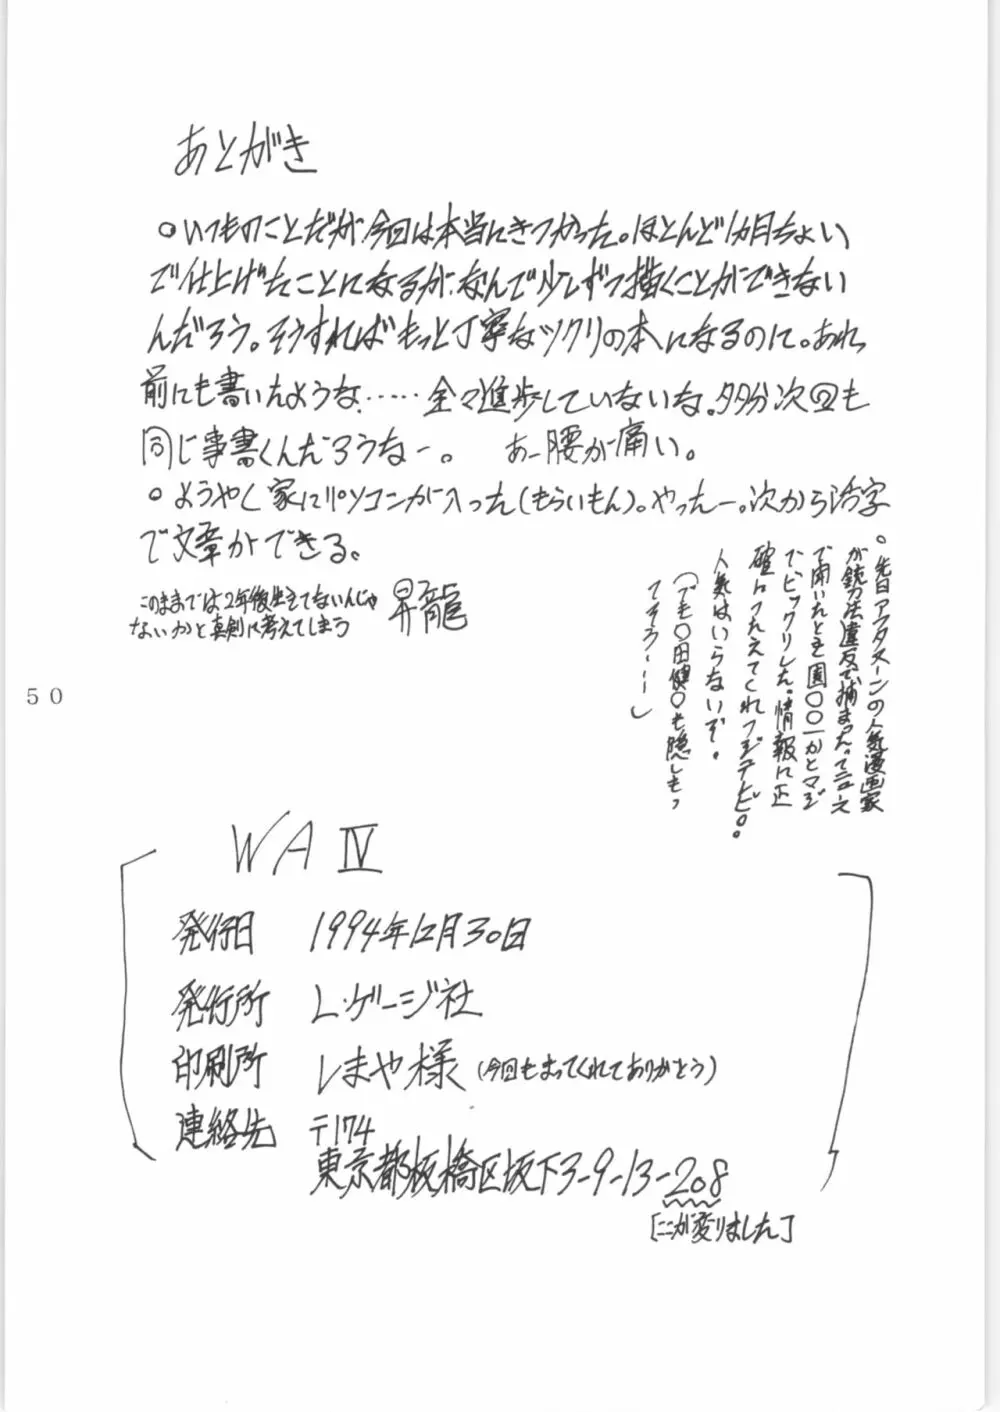 あとがき
○いつものことだが、今回は本当にきつかった。ほとんど1カ月ちょい
で仕上げたことになるが、なんで少しずつ描くことができない
んだろう。そうすればもっと丁寧なツクリの本になるのに。あれ
前にも書いたような……全々進歩していないな。多分次回も
同じ事書くんだろうなー。 あー腰が痛い。
○ようやく家にパソコンが入った(もらいもん)。やったー。次から活字
で文章ができる。
このままでは2年後生きてないんじゃ
ないかと真剣に考えてしまう
昇龍
○先日アフタヌーンの人気漫画家
が銃刀法違反で捕まったってニュース
で聞いたとき園○○一かとマジ
でビックリした。情報は正
確につたえてくれフジテレビ。
人気はいらないぞ。
(でも○田健○も隠しもっ
てそうーーー)
50
WA Ⅳ
発行日 1994年12月30日
発行所 L・ゲージ社
印刷所 しまや様(今回もまってくれてありがとう)
連絡先 〒174
東京都板橋区坂下3-9-13-208
[ここが変りました]